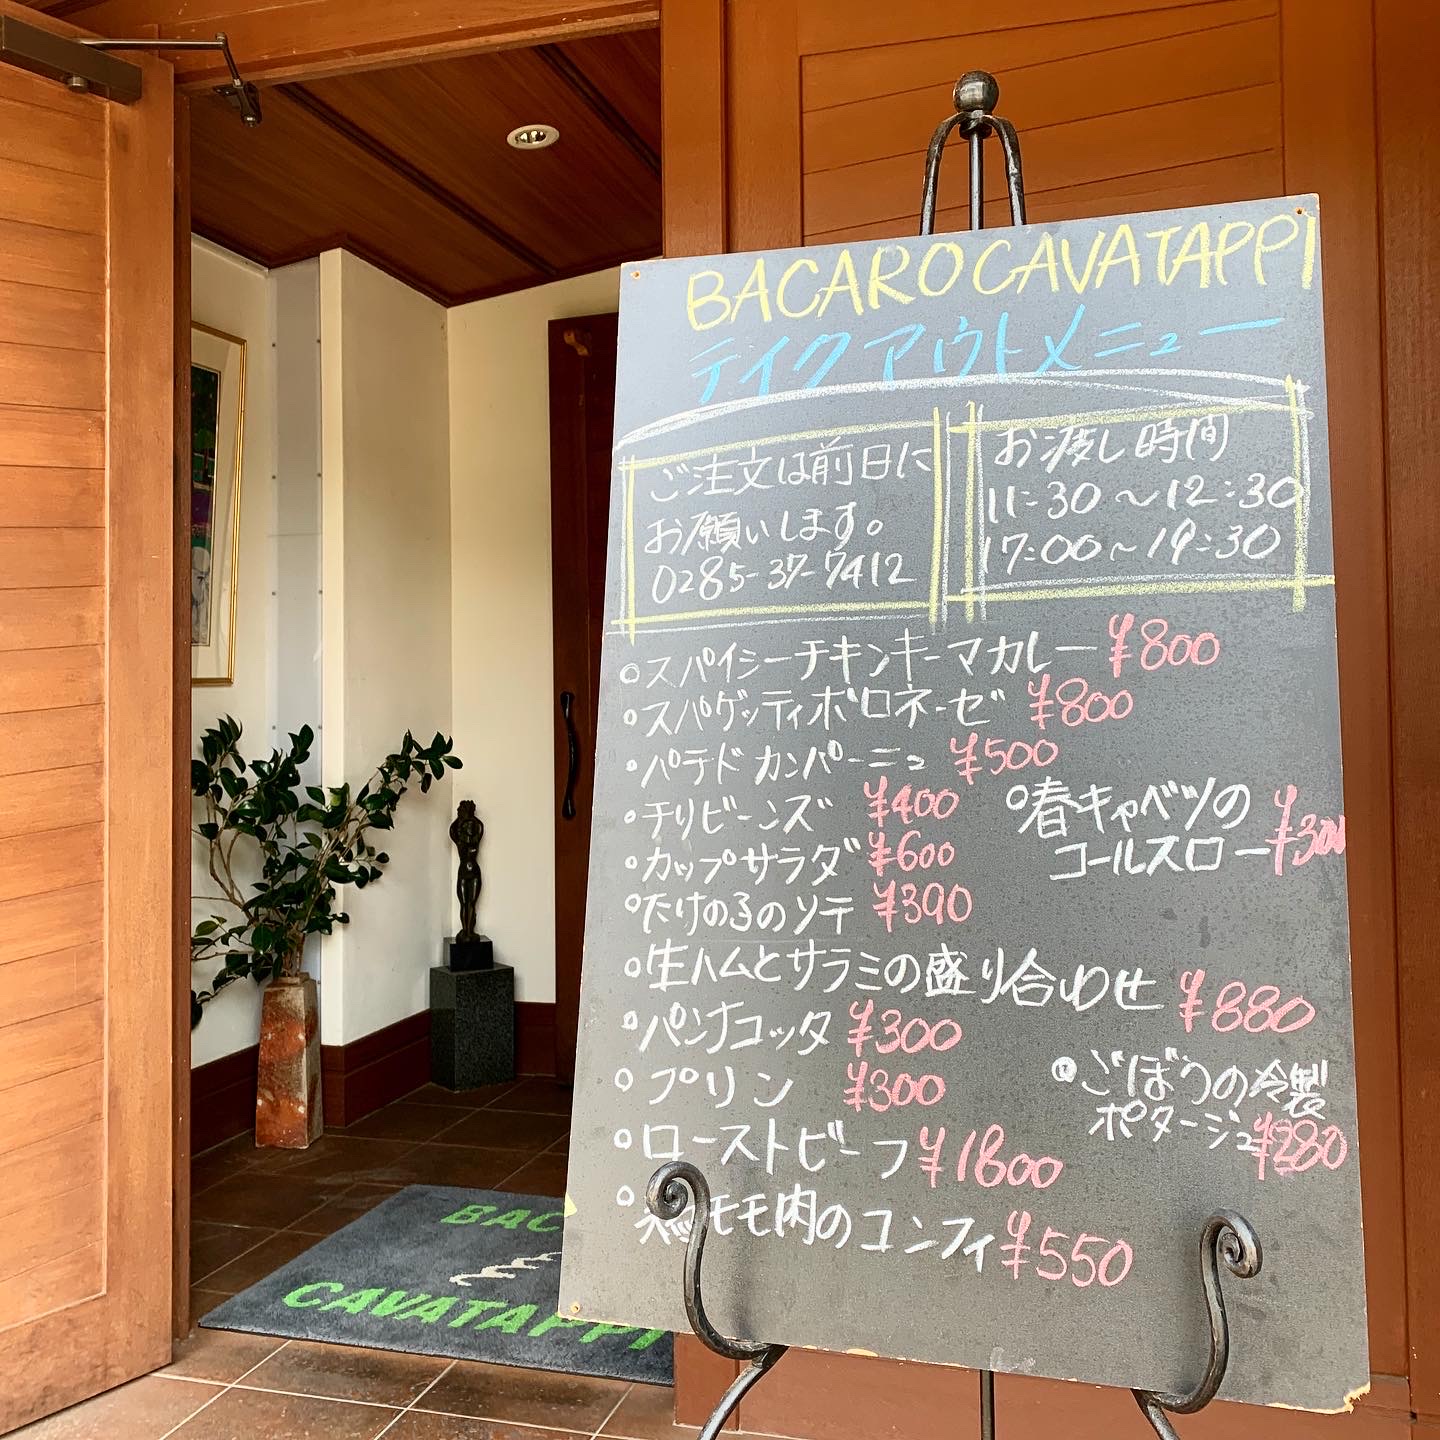 BACARO CAVATAPPI
テイクアウトメニュー
ご注文は前日に
お願いします。
0285-37-7412
お渡し時間
11:30〜12:30
17:00〜19:30
スパイシーチキンキーマカレー ¥800
スパゲッティボロネーゼ ¥800
パテドカンパーニュ ¥500
チリビーンズ ¥400
春キャベツの
コールスロー ¥300
カップサラダ ¥600
たけの子のソテ ¥390
生ハムとサラミの盛り合わせ ¥880
パンナコッタ ¥300
プリン ¥300
ごぼうの冷製
ポタージュ ¥280
ローストビーフ ¥1800
モモ肉のコンフィ ¥550
BAC
CAVATAPPI